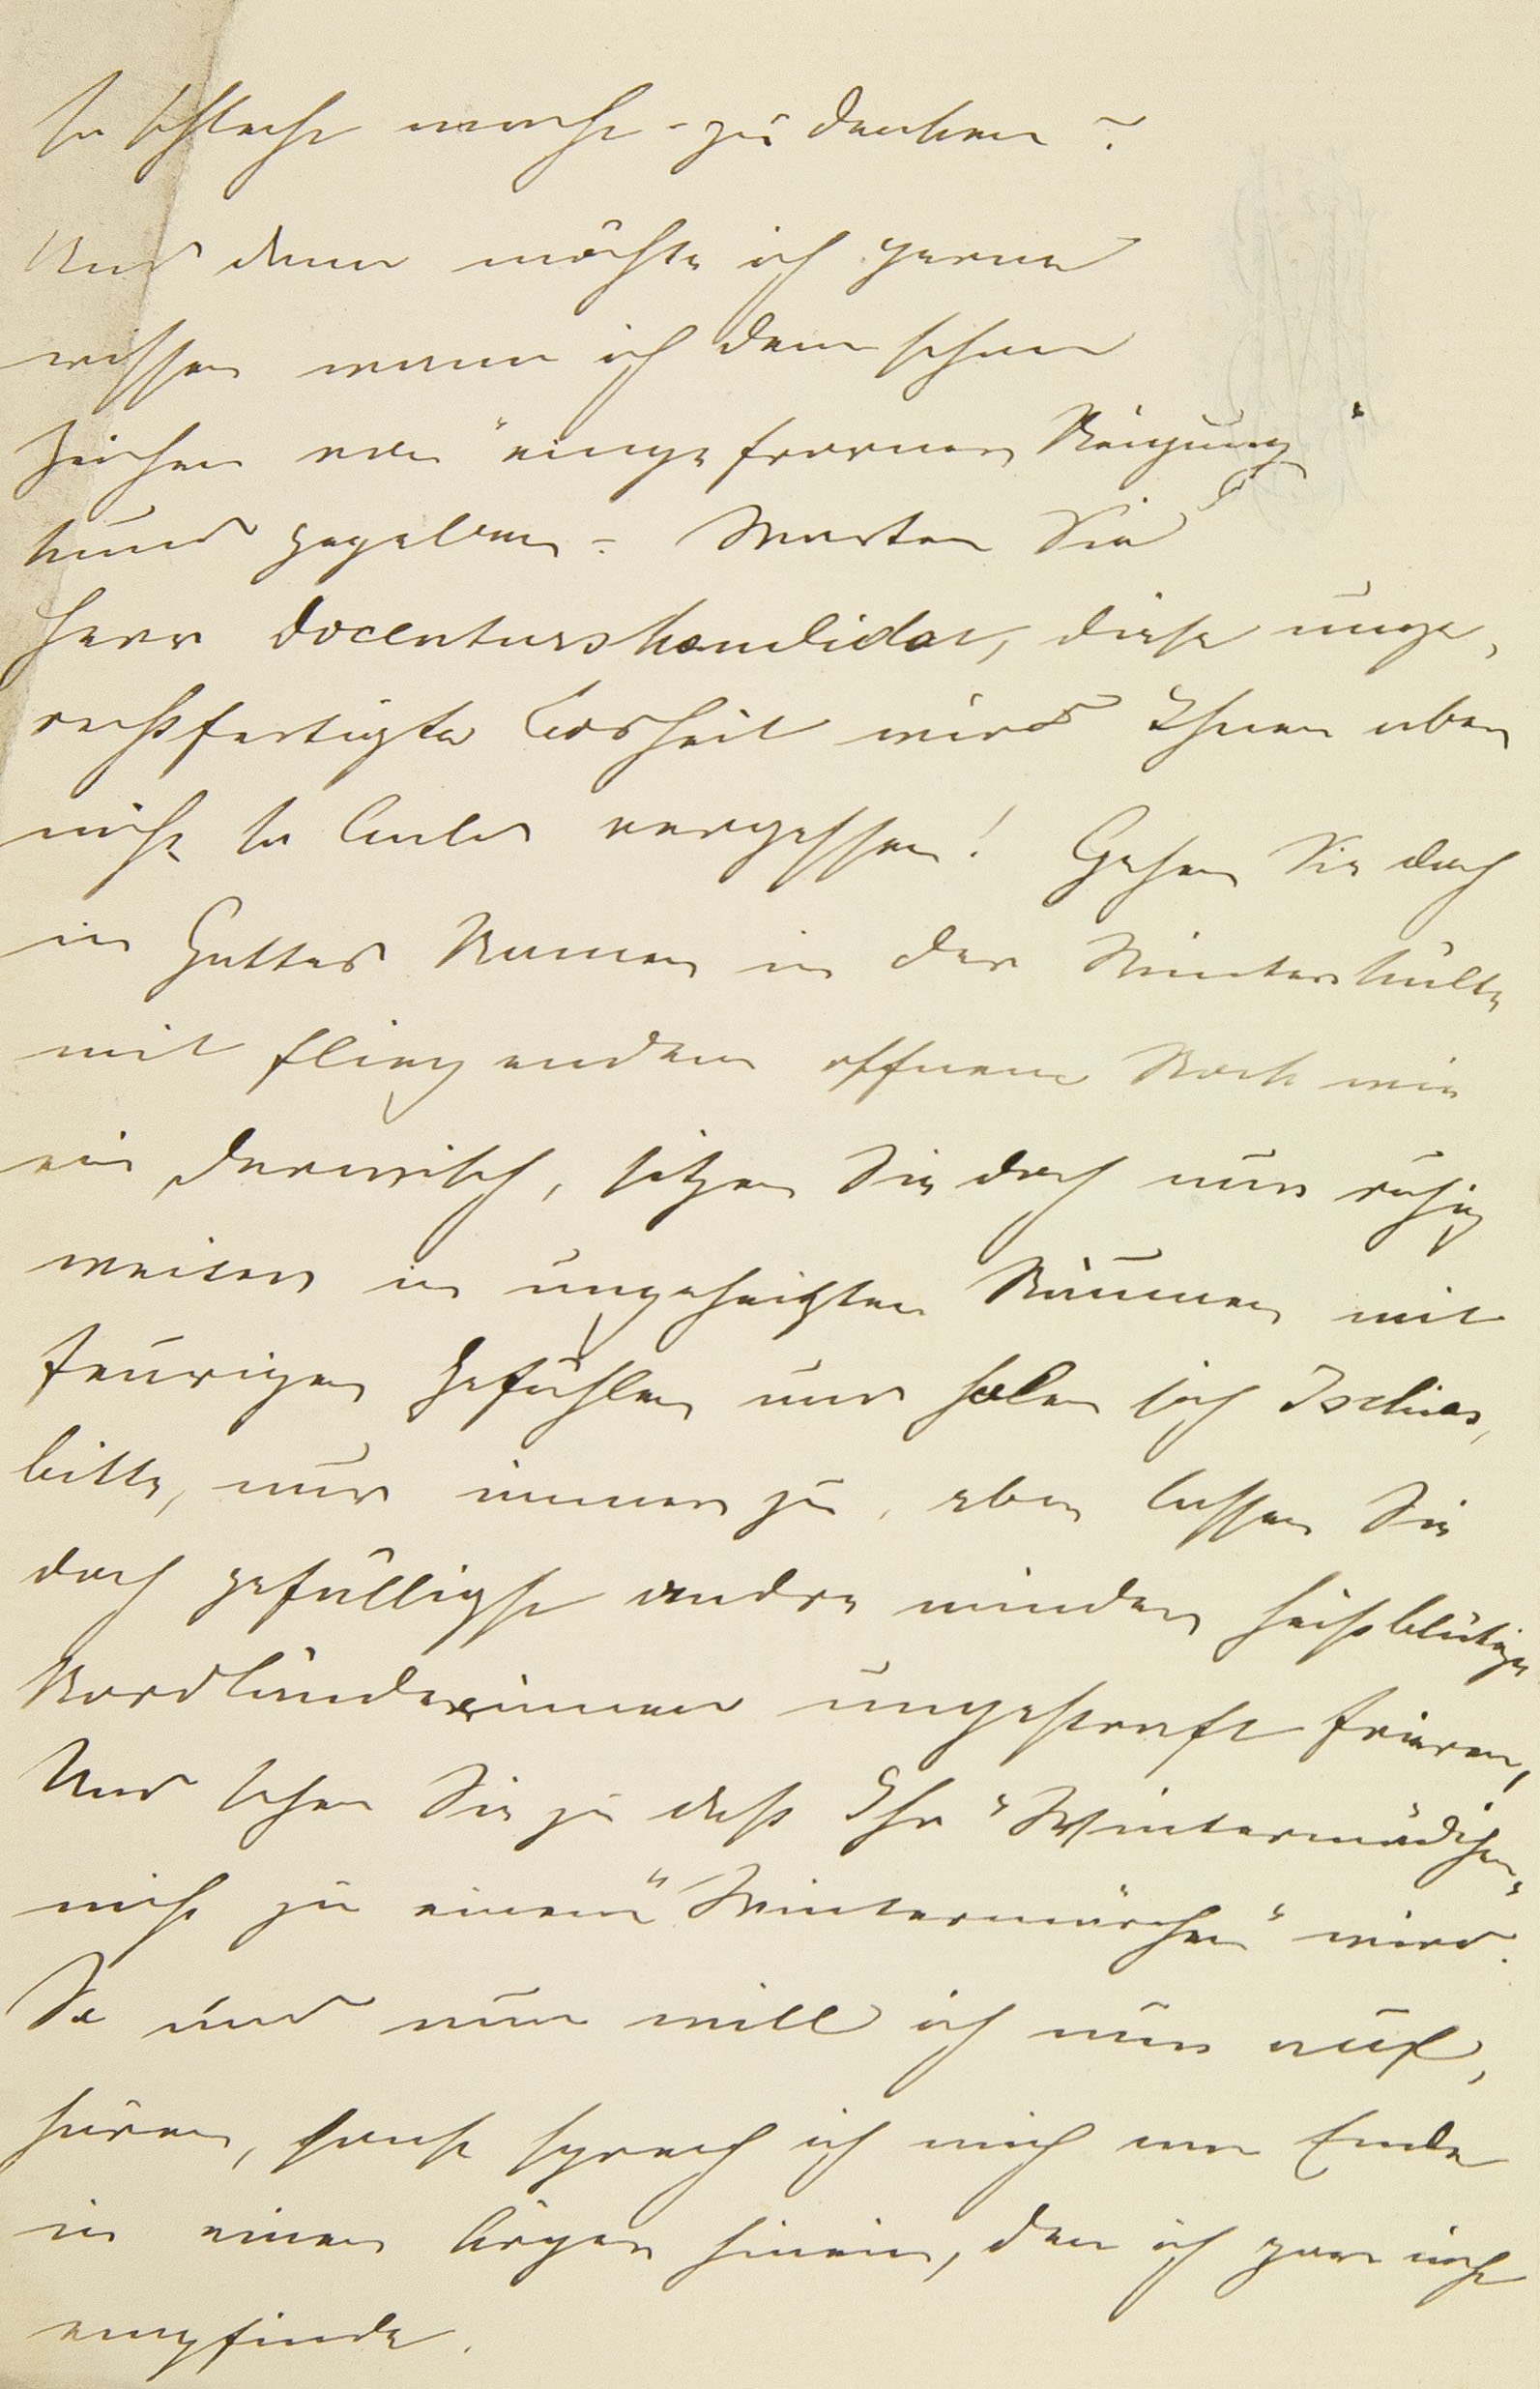 so schlecht macht - zu denken?
Und dann möchte ich gerne
wissen wann ich denn schon
Zeichen von "eingefrorner Neigung"
kund gegeben - Warten Sie
Herr Docenturskandidat, diese unge-
rechtfertigte Bosheit wird Ihnen aber
nicht so bald vergessen! Gehen Sie doch
in Gottes Namen in der Winterkälte
mit fliegendem offnem Rock wie
ein Derwisch, sitzen Sie doch nur ruhig
weiter in ungeheizten Räumen mit
feurigen Gefühlen und holen sich Ischias,
bitte, nur immer zu, aber lassen Sie
doch gefälligst andre minder heißblütige
Nordländerinnen ungestraft frieren,
Und sehen Sie zu daß Ihr "Wintermädchen"
nicht zu einem "Wintermärchen" wird.
So und nun will ich nur auf-
hören, sonst sprech ich mich am Ende
in einen Ärger hinein, den ich gar nicht
empfinde.